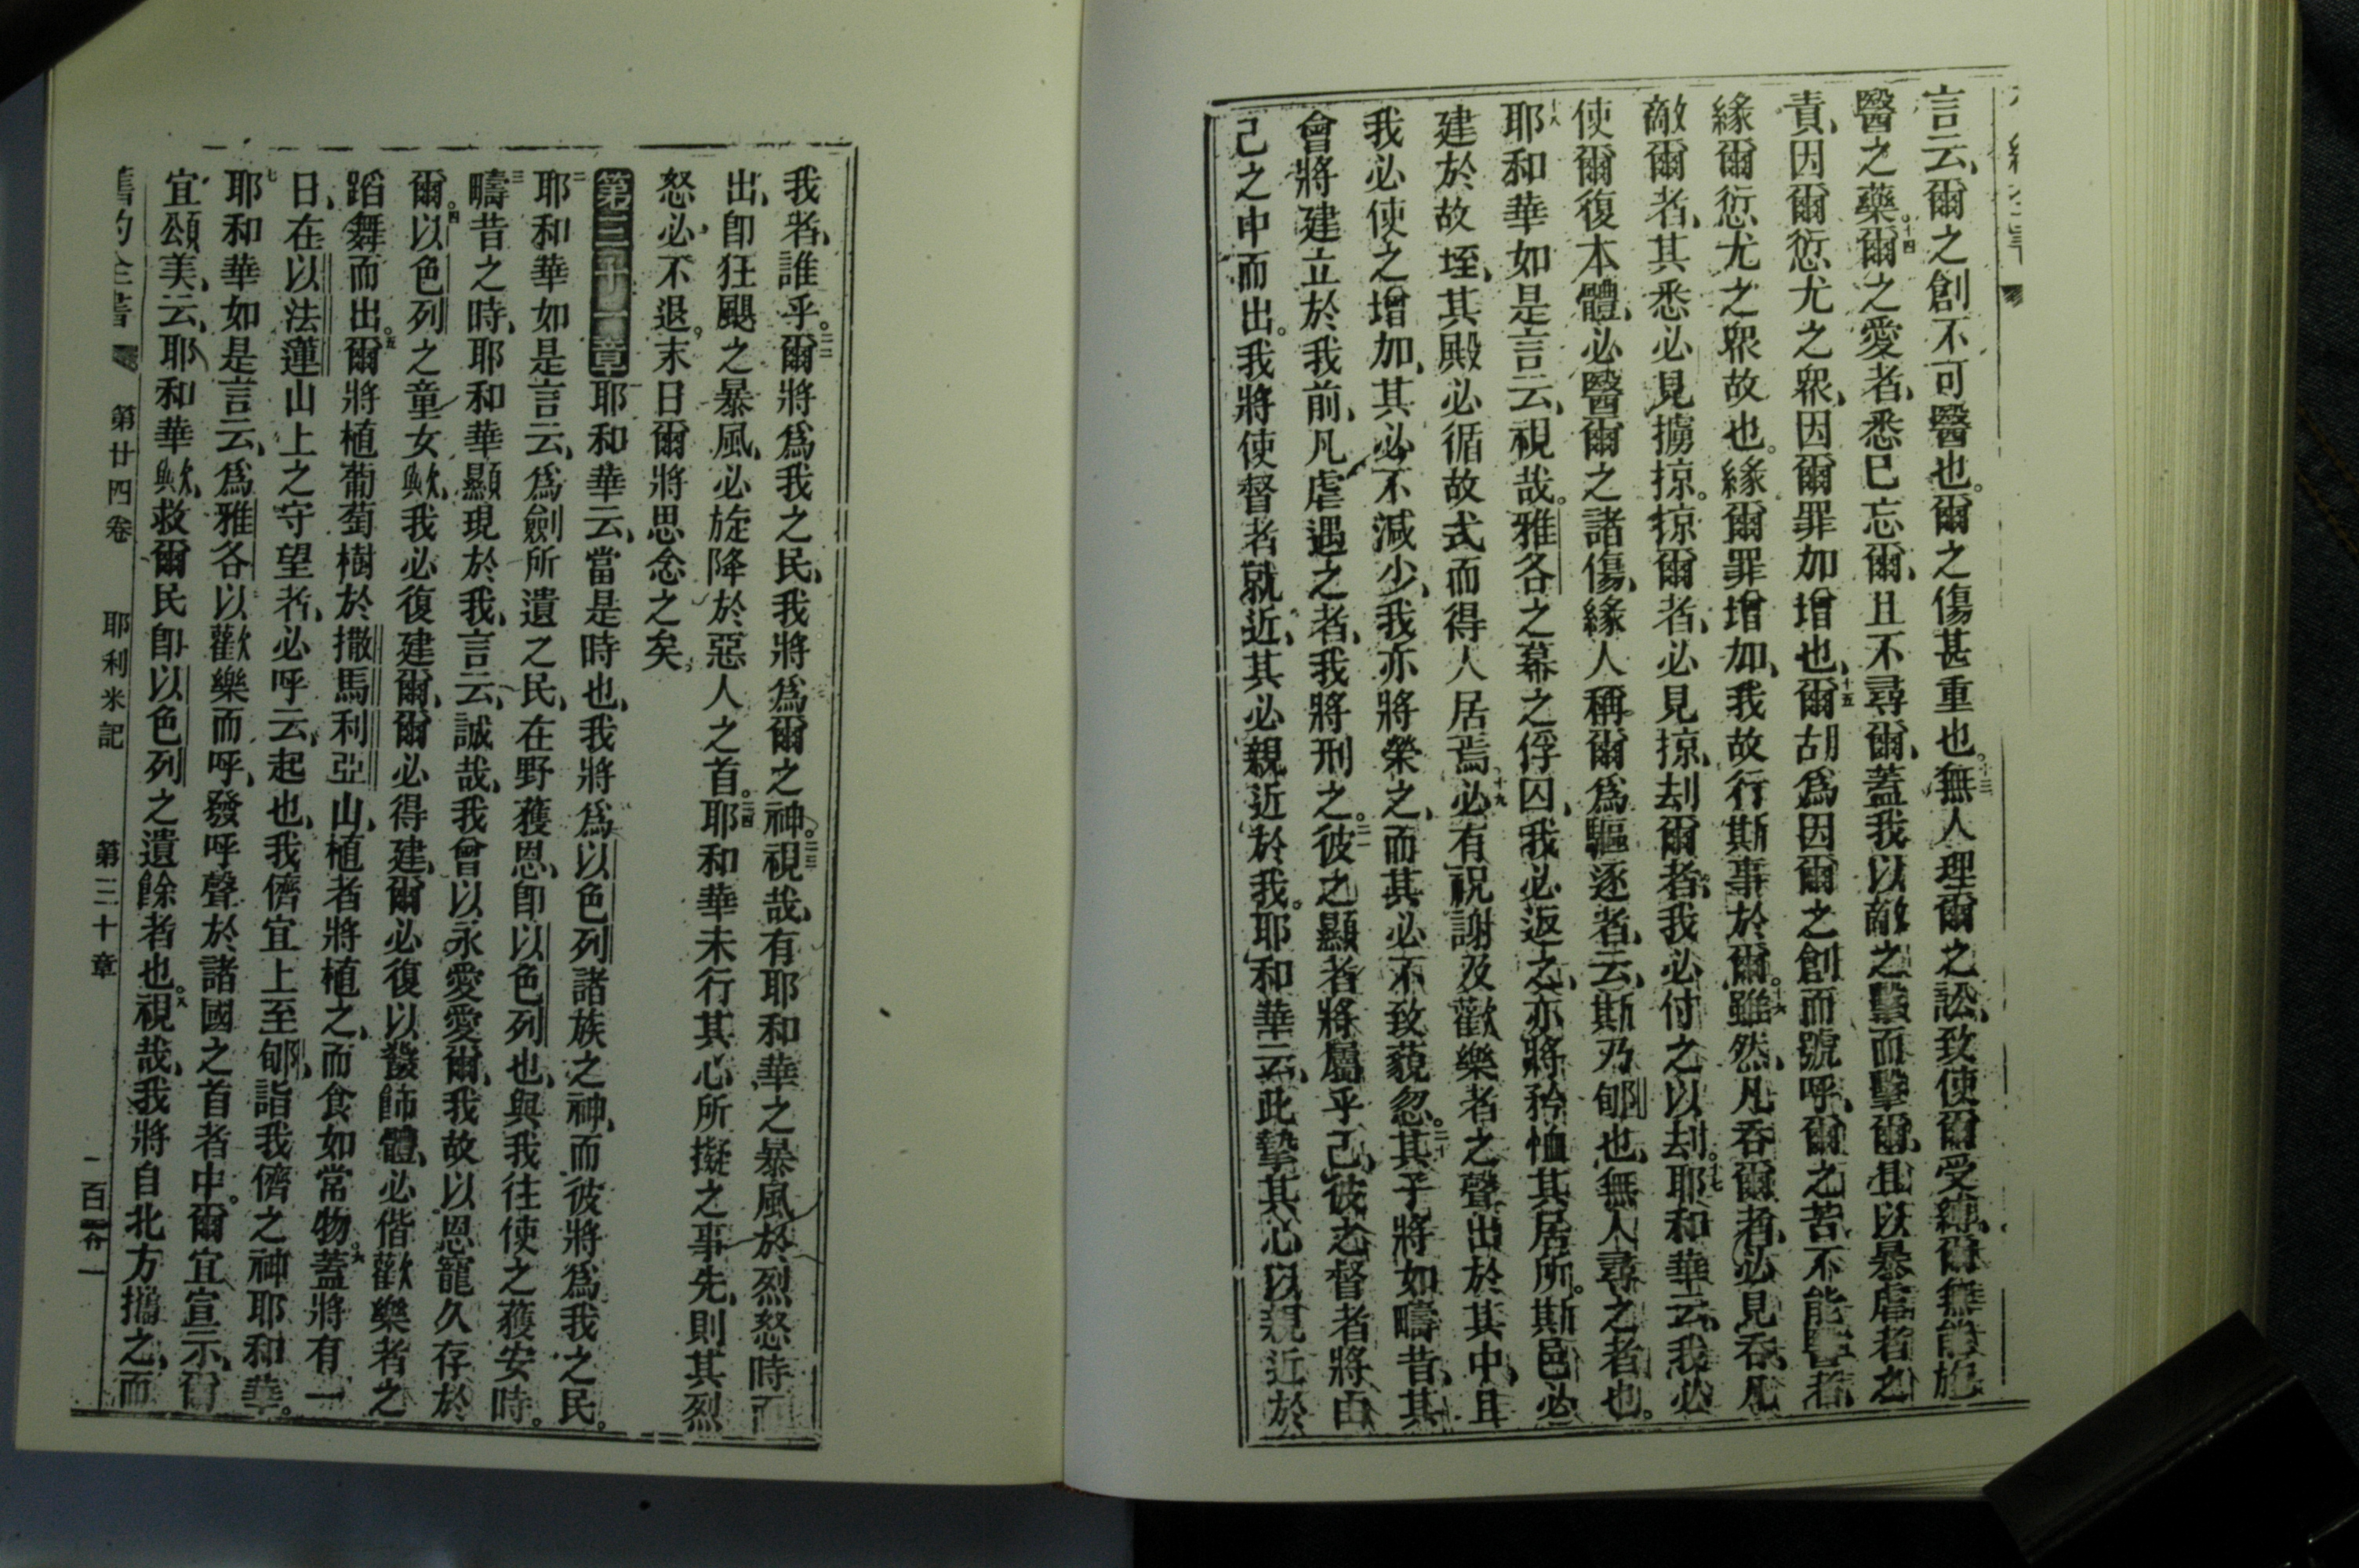 言云、爾之創不可醫也。爾之傷甚重也。十三無人理爾之訟、致使爾受纏、爾無能施
醫之藥。十四爾之愛者、悉已忘爾、且不尋爾、蓋我以敵之擊而擊爾、且以暴虐者之
責、因爾愆尤之眾、因爾罪加增也、十五爾胡爲因爾之創而號呼、爾之苦不能醫者、
緣爾愆尤之眾故也。緣爾罪增加、我故行斯事於爾。十六雖然、凡吞爾者、必見吞、凡
敵爾者、其悉必見擄掠。掠爾者、必見掠、刦爾者、我必付之以刦。十七耶和華云、我必
使爾復本體、必醫爾之諸傷、緣人稱爾爲驅逐者、云、斯乃郇也、無人尋之者也。
十八耶和華如是言云、視哉。雅各之幕之俘囚、我必返之、亦將矜恤其居所。斯邑必
建於故垤、其殿必循故式而得人居焉。十九必有祝謝及歡樂者之聲出於其中、且
我必使之增加、其必不減少、我亦將榮之、而其必不致藐忽。二十其子將如疇昔、其
會將建立於我前、凡虐遇之者、我將刑之。二一彼之顯者將屬乎己、彼之督者將由
己之中而出。我將使督者就近、其必親近於我。耶和華云、此摯其心以親近於
我者、誰乎。二二爾將爲我之民、我將爲爾之神。二三視哉、有耶和華之暴風於烈怒時而
出、卽狂颶之暴風、必旋降於惡人之首。二四耶和華未行其心所擬之事先、則其烈
怒必不退。末日爾將思念之矣。
第三十一章 一耶和華云、當是時也、我將爲以色列諸族之神、而彼將爲我之民。
二耶和華如是言云、爲劍所遺之民、在野獲恩、卽以色列也、與我往使之獲安時。
三疇昔之時、耶和華顯現於我、言云、誠哉、我曾以永愛愛爾、我故以恩寵久存於
爾。四以色列之童女歟、我必復建爾、爾必得建、爾必復以鼗飾體、必偕歡樂者之
蹈舞而出。五爾將植葡萄樹於撒馬利亞山、植者將植之、而食如常物。六蓋將有一
日、在以法蓮山上之守望者、必呼云、起也、我儕宜上至郇、詣我儕之神耶和華。
七耶和華如是言云、爲雅各以歡樂而呼、發呼聲於諸國之首者中。爾宜宣示、爾
宜頌美、云、耶和華歟、救爾民卽以色列之遺餘者也。八視哉、我將自北方攜之、而
舊約全書 第廿四卷 耶利米記 第三十章